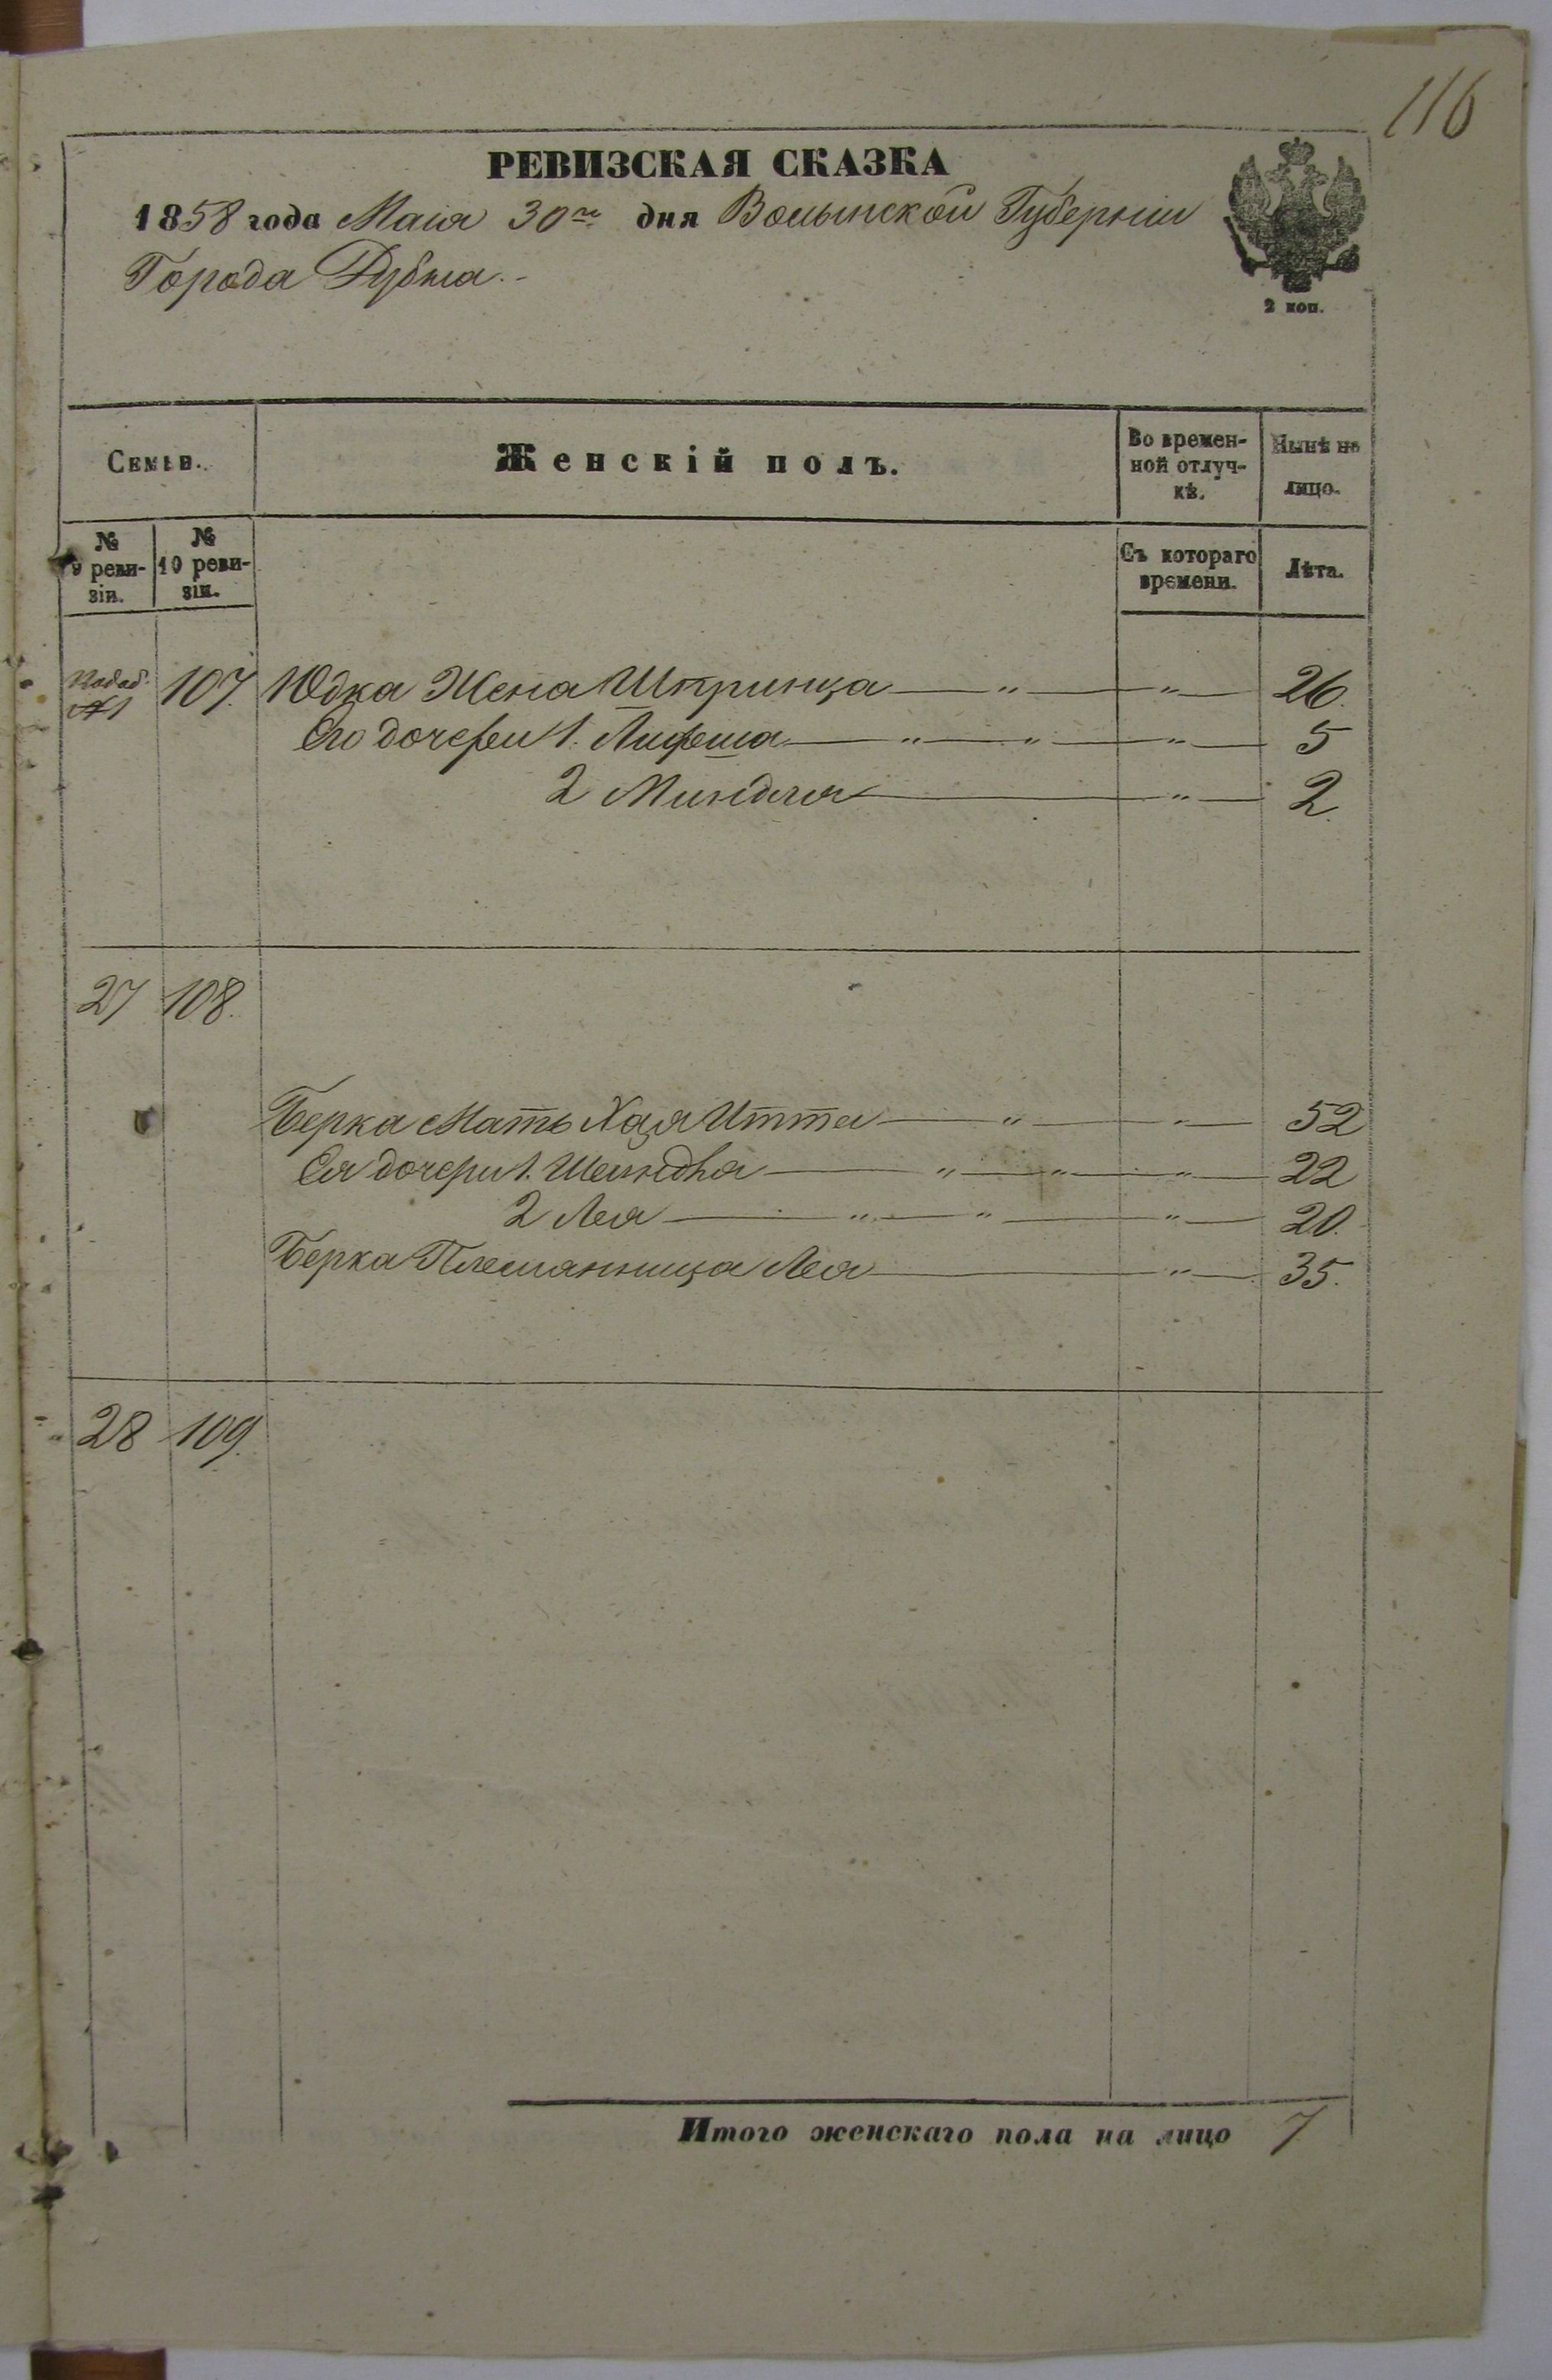 116
РЕВИЗСКАЯ СКАЗКА
1858 года Маія 30го дня Волынской Губерніи
Города Дубна.
2 коп.
Семьи. Женскій полъ. Во времен-ной отлуч-кѣ. Нынѣ на лицо.
№ 9 реви-зіи. № 10 реви-зіи. Съ котораго времени. Лѣта.
107. Юдка Жена Шпринца — " — " — 26.
Его дочери 1. Лифша — " — " — " — 5
2 Миндля — " — 2.
27 108.
Берка Мать Хая Итта — " — " — 52
Ея дочери 1. Шейндля — " — " — " — 22
2 Лея — " — " — " — 20.
Берка Племянница Лея — " — 35.
28 109.
Итого женскаго пола на лицо 7